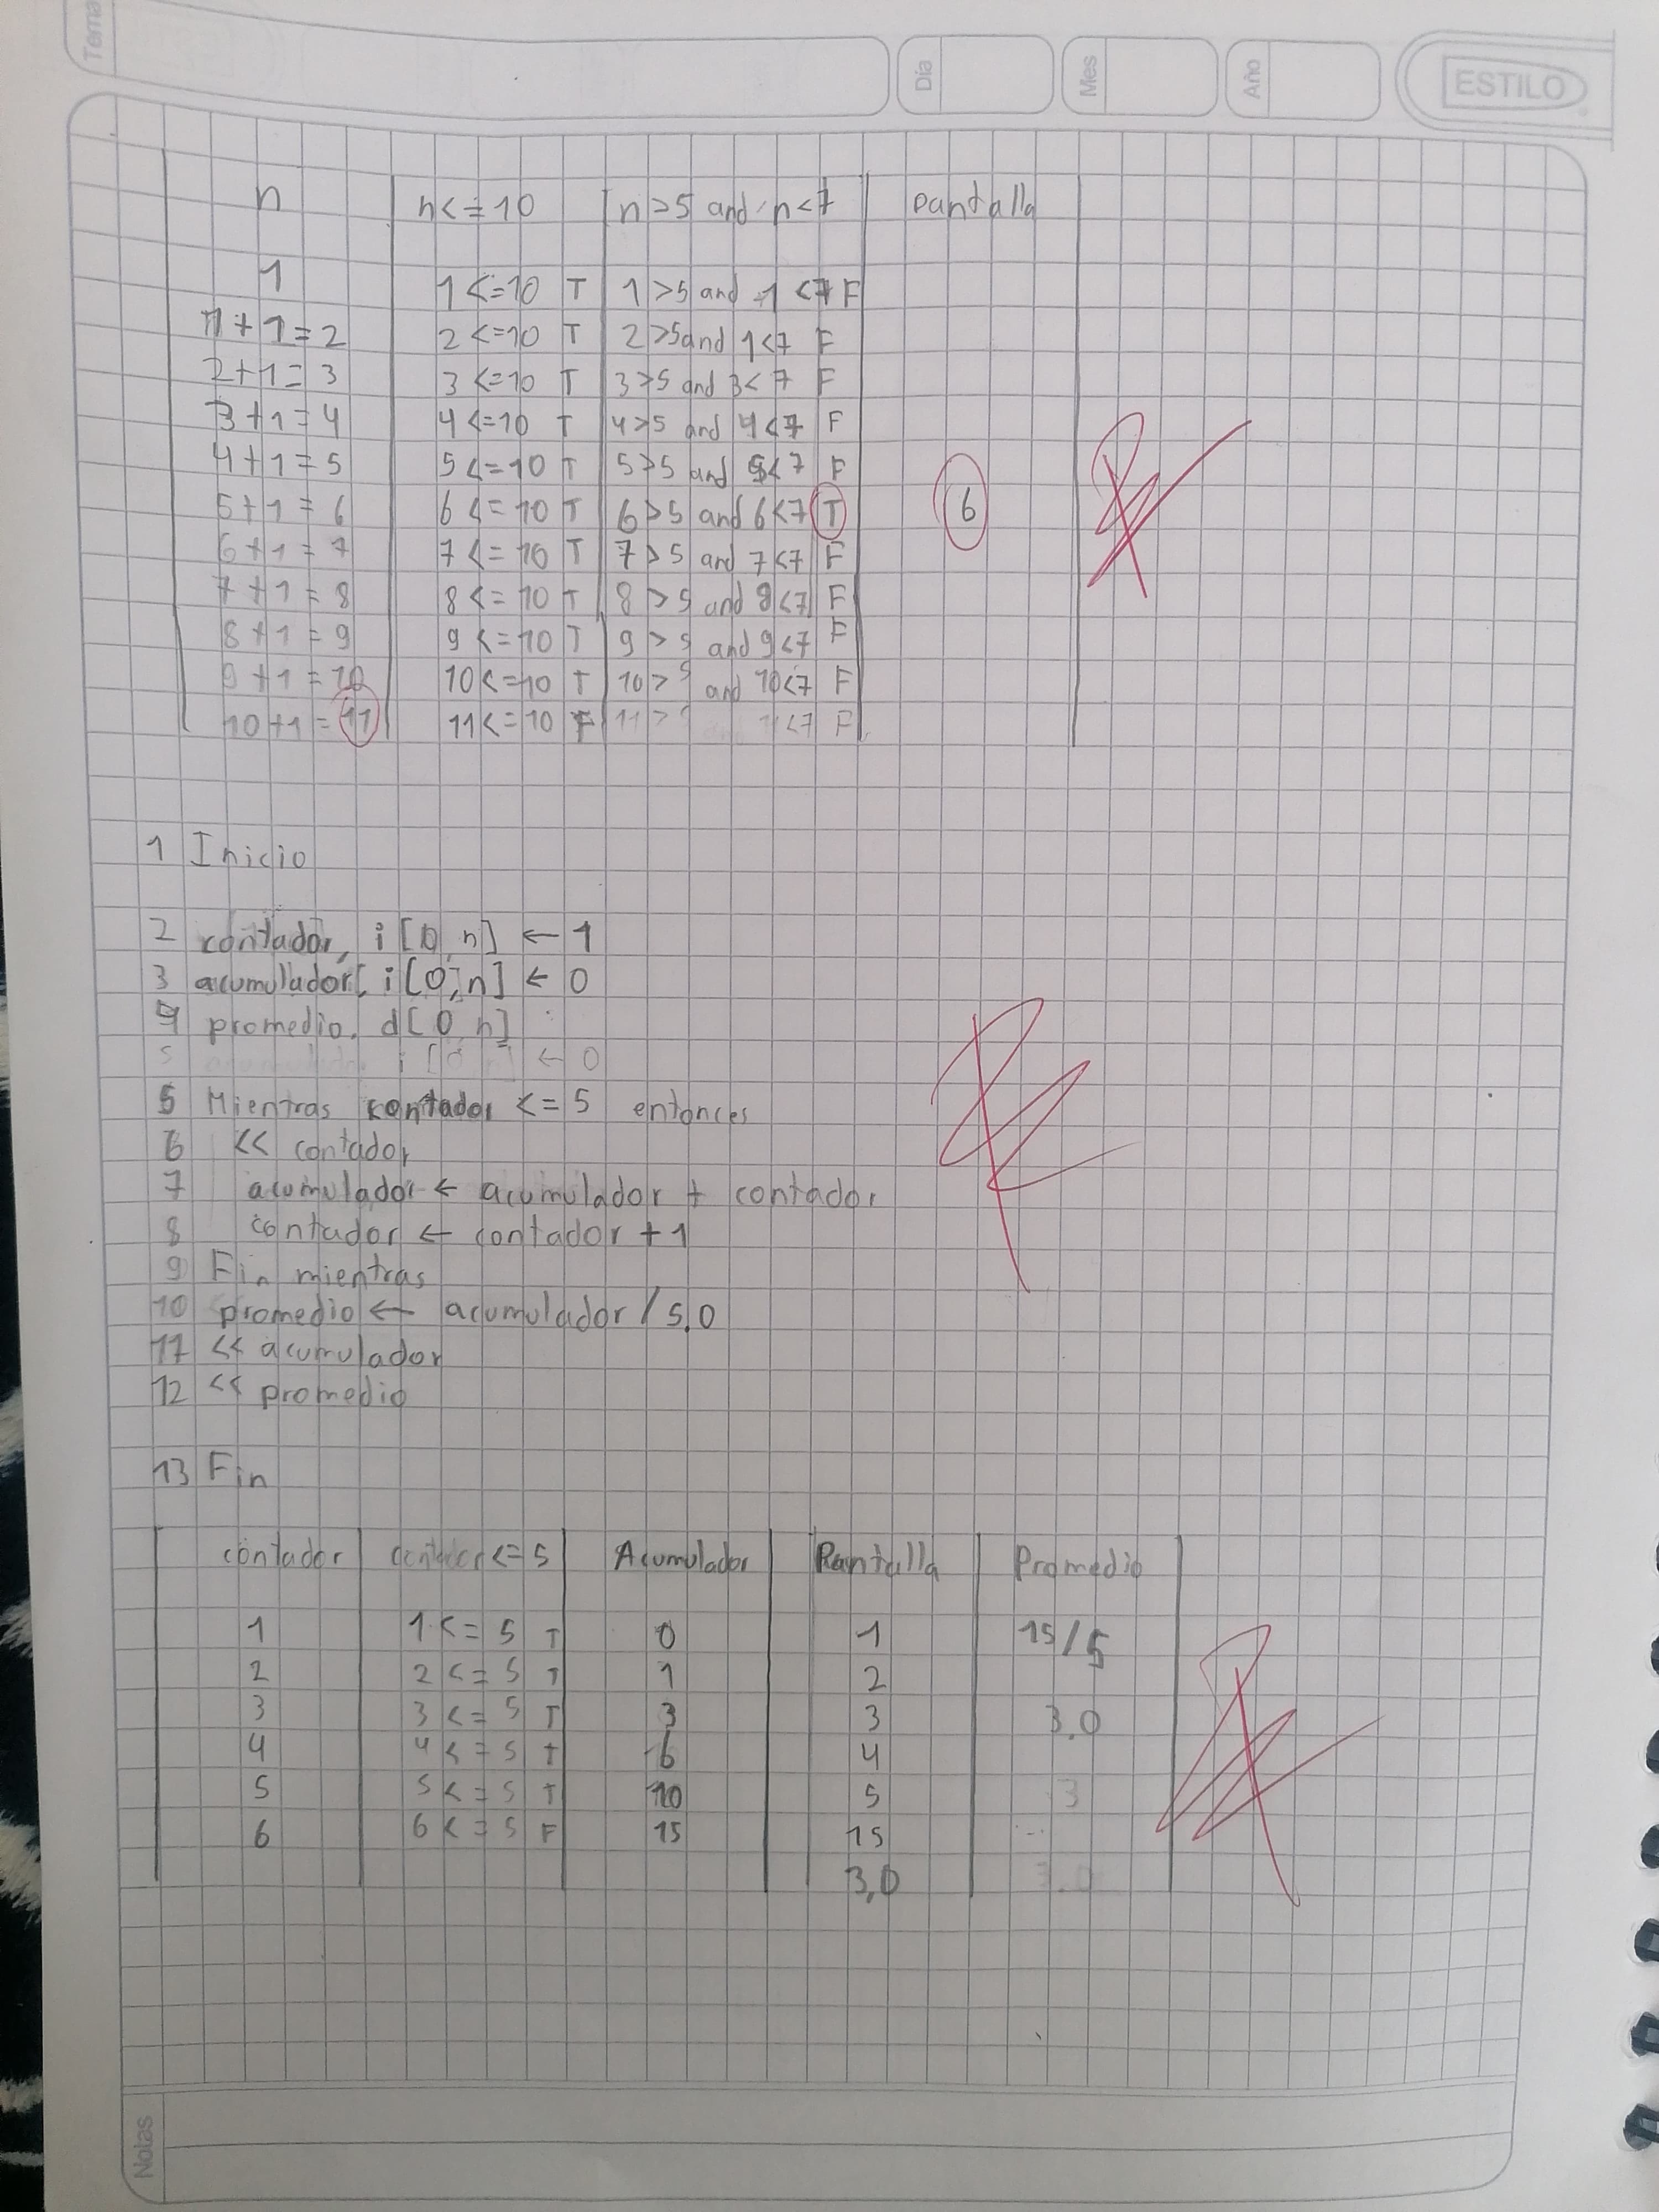 Tema
Día
Mes
Año
ESTILO
n n<=10 n>5 and n<7 pantalla
1 1<=10 T 1>5 and 1<7 F
1+1=2 2<=10 T 2>5 and 1<7 F
2+1=3 3<=10 T 3>5 and 3<7 F
3+1=4 4<=10 T 4>5 and 4<7 F
4+1=5 5<=10 T 5>5 and 5<7 F
5+1=6 6<=10 T 6>5 and 6<7 T 6
6+1=7 7<=10 T 7>5 and 7<7 F
7+1=8 8<=10 T 8>5 and 8<7 F
8+1=9 9<=10 T 9>5 and 9<7 F
9+1=10 10<=10 T 10>5 and 10<7 F
10+1=11 11<=10 F 11> 11<7 F
1 Inicio
2 contador, i[0,n] ← 1
3 acumulador, i[0,n] ← 0
4 promedio, d[0,n]
5 i[0,n] ← 0
5 Mientras contador <= 5 entonces
6 << contador
7 acumulador ← acumulador + contador
8 contador ← contador + 1
9 Fin mientras
10 promedio ← acumulador / 5.0
11 << acumulador
12 << promedio
13 Fin
contador contador<=5 Acumulador Pantalla Promedio
1 1<=5 T 0 1 15/5
2 2<=5 T 1 2
3 3<=5 T 3 3 3.0
4 4<=5 T 6 4
5 5<=5 T 10 5 3
6 6<=5 F 15 15
3,0 3.0
Notas